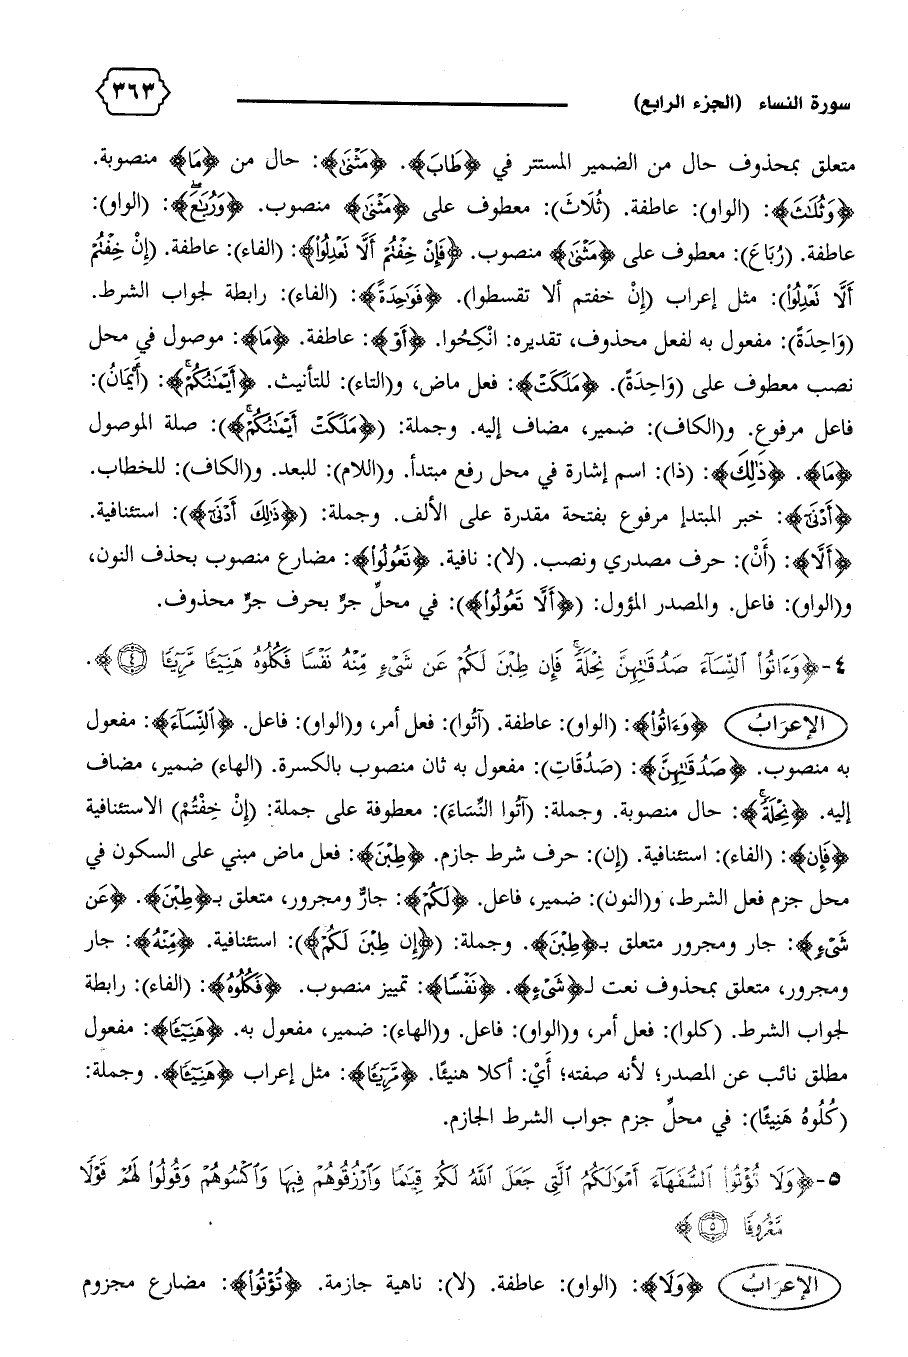 سورة النساء (الجزء الرابع)
٣٦٣
متعلق بمحذوف حال من الضمير المستتر في ﴿طَابَ﴾. ﴿مَثْنَىٰ﴾: حال من ﴿مَا﴾ منصوبة.
﴿وَثُلَٰثَ﴾: (الواو): عاطفة. (ثُلَاثَ): معطوف على ﴿مَثْنَىٰ﴾ منصوب. ﴿وَرُبَٰعَ ۖ﴾: (الواو):
عاطفة. (رُبَاعَ): معطوف على ﴿مَثْنَىٰ﴾ منصوب. ﴿فَإِنْ خِفْتُمْ أَلَّا تَعْدِلُوا۟﴾: (الفاء): عاطفة. (إِنْ خِفْتُمْ
أَلَّا تَعْدِلُوا۟): مثل إعراب (إنْ خفتم ألا تقسطوا). ﴿فَوَٰحِدَةً﴾: (الفاء): رابطة لجواب الشرط.
(وَاحِدَةً): مفعول به لفعل محذوف، تقديره: انْكِحُوا. ﴿أَوْ﴾: عاطفة. ﴿مَا﴾: موصول في محل
نصب معطوف على (وَاحِدَةً). ﴿مَلَكَتْ﴾: فعل ماض، و(التاء): للتأنيث. ﴿أَيْمَٰنُكُمْ ۚ﴾: (أَيْمَانُ):
فاعل مرفوع. و(الكاف): ضمير، مضاف إليه. وجملة: (﴿مَلَكَتْ أَيْمَٰنُكُمْ ۚ﴾): صلة الموصول
﴿مَا﴾. ﴿ذَٰلِكَ﴾: (ذا): اسم إشارة في محل رفع مبتدأ. و(اللام): للبعد. و(الكاف): للخطاب.
﴿أَدْنَىٰٓ﴾: خبر المبتدإ مرفوع بفتحة مقدرة على الألف. وجملة: (﴿ذَٰلِكَ أَدْنَىٰٓ﴾): استئنافية.
﴿أَلَّا﴾: (أَنْ): حرف مصدري ونصب. (لا): نافية. ﴿تَعُولُوا۟﴾: مضارع منصوب بحذف النون،
و(الواو): فاعل. والمصدر المؤول: (﴿أَلَّا تَعُولُوا۟﴾): في محلِّ جرٍّ بحرف جرٍّ محذوف.
٤-﴿وَءَاتُوا۟ ٱلنِّسَآءَ صَدُقَٰتِهِنَّ نِحْلَةً ۚ فَإِن طِبْنَ لَكُمْ عَن شَىْءٍ مِّنْهُ نَفْسًا فَكُلُوهُ هَنِيٓـًٔا مَّرِيٓـًٔا ﴿٤﴾﴾.
الإعرَابُ ﴿وَءَاتُوا۟﴾: (الواو): عاطفة. (آتُوا): فعل أمر، و(الواو): فاعل. ﴿ٱلنِّسَآءَ﴾: مفعول
به منصوب. ﴿صَدُقَٰتِهِنَّ﴾: (صَدُقَاتِ): مفعول به ثان منصوب بالكسرة. (الهاء) ضمير، مضاف
إليه. ﴿نِحْلَةً ۚ﴾: حال منصوبة. وجملة: (آتُوا النِّسَاءَ): معطوفة على جملة: (إِنْ خِفْتُمْ) الاستئنافية
﴿فَإِن﴾: (الفاء): استئنافية. (إن): حرف شرط جازم. ﴿طِبْنَ﴾: فعل ماض مبني على السكون في
محل جزم فعل الشرط، و(النون): ضمير، فاعل. ﴿لَكُمْ﴾: جارٌّ ومجرور، متعلق بـ﴿طِبْنَ﴾. ﴿عَن
شَىْءٍ﴾: جار ومجرور متعلق بـ﴿طِبْنَ﴾. وجملة: (﴿إِن طِبْنَ لَكُمْ﴾): استئنافية. ﴿مِّنْهُ﴾: جار
ومجرور، متعلق بمحذوف نعت لـ﴿شَىْءٍ﴾. ﴿نَفْسًا﴾: تمييز منصوب. ﴿فَكُلُوهُ﴾: (الفاء): رابطة
لجواب الشرط. (كلوا): فعل أمر، و(الواو): فاعل. و(الهاء): ضمير، مفعول به. ﴿هَنِيٓـًٔا﴾: مفعول
مطلق نائب عن المصدر؛ لأنه صفته؛ أَيْ: أكلا هنيئًا. ﴿مَّرِيٓـًٔا﴾: مثل إعراب ﴿هَنِيٓـًٔا﴾. وجملة:
(كُلُوهُ هَنِيئًا): في محلِّ جزم جواب الشرط الجازم.
٥-﴿وَلَا تُؤْتُوا۟ ٱلسُّفَهَآءَ أَمْوَٰلَكُمُ ٱلَّتِى جَعَلَ ٱللَّهُ لَكُمْ قِيَٰمًا وَٱرْزُقُوهُمْ فِيهَا وَٱكْسُوهُمْ وَقُولُوا۟ لَهُمْ قَوْلًا
مَّعْرُوفًا ﴿٥﴾﴾
الإعرَابُ ﴿وَلَا﴾: (الواو): عاطفة. (لا): ناهية جازمة. ﴿تُؤْتُوا۟﴾: مضارع مجزوم